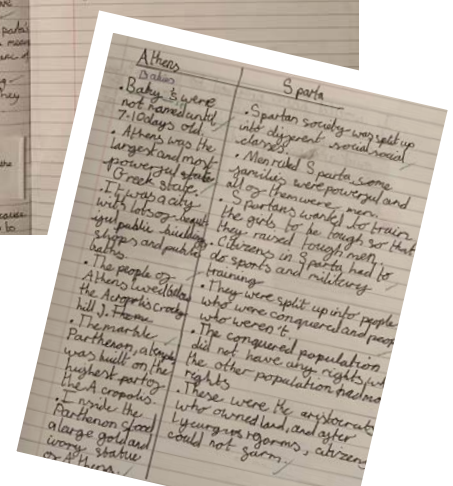 Athens
Babies
• Baby's were
not named until
7-10 days old.
• Athens was the
largest and most
powerful state
Greek state.
• It was a city
with lots of beaut
iful public buildings
shops and public
baths.
• The people of
Athens lived below
the Acropolis
hill
• The marble
Parthenon, a temple
was built on the
highest part of
the Acropolis.
• Inside the
Parthenon stood
a large gold and
ivory statue
of Athena.
Sparta
• Spartan society was split up
into different social social
classes
• Men ruled Sparta some
families were powerful and
all of them were men.
• Spartans wanted to train
the girls to be tough so that
they raised tough men
• Citizens in Sparta had to
do sports and military
training
• They were split up into people
who were conquered and peop
who weren't.
• The conquered population
did not have any rights, wh
the other population had
rights
• These were the aristocrats
who owned land, and after
Lycurgus reforms, citizens
could not farm.
they
the